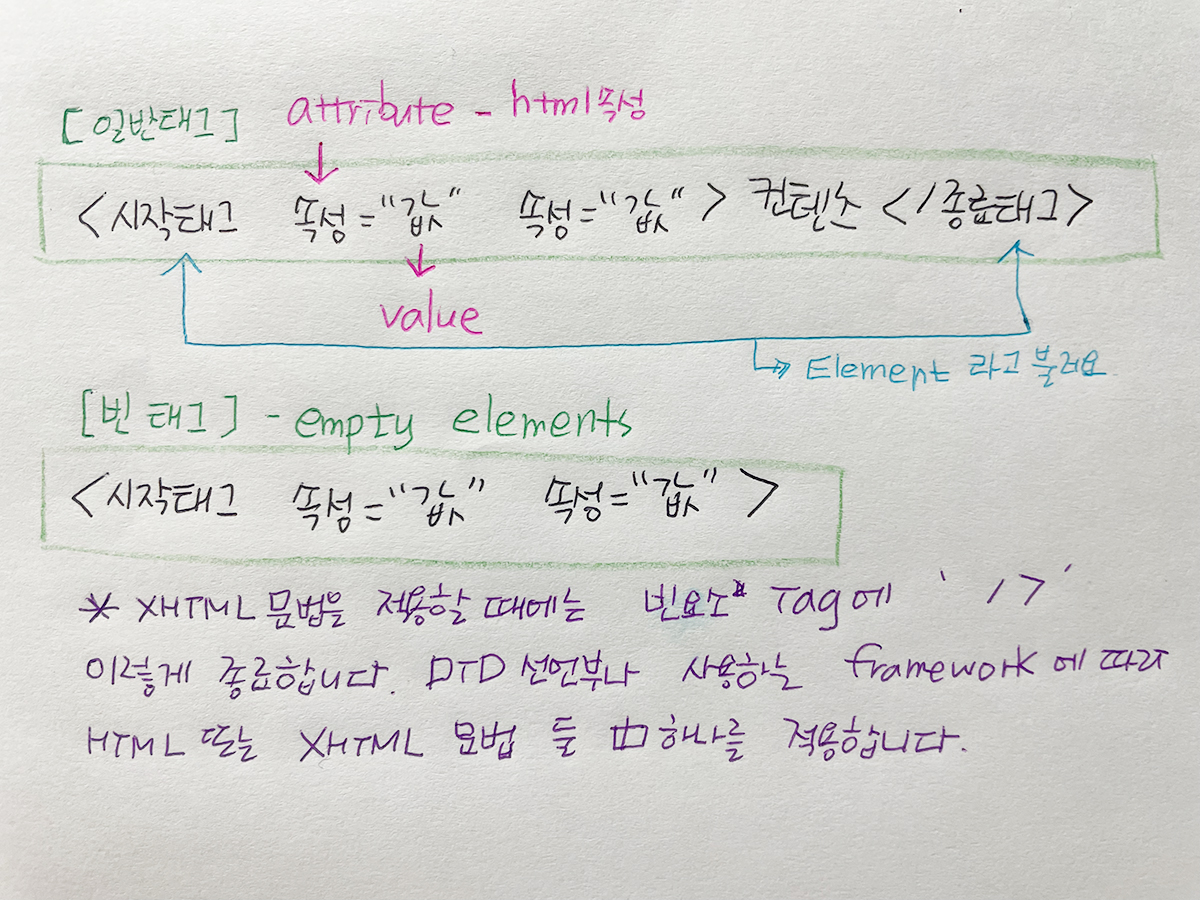 [일반태그] attribute - html속성
<시작태그 속성="값" 속성="값"> 컨텐츠 </종료태그>
value
Element 라고 불러요
[빈 태그] - empty elements
<시작태그 속성="값" 속성="값">
* XHTML 문법을 적용할 때에는 빈요소 Tag에 ' />'
이렇게 종료합니다. DTD 선언부나 사용하는 framework에 따라
HTML 또는 XHTML 문법 둘 中 하나를 적용합니다.